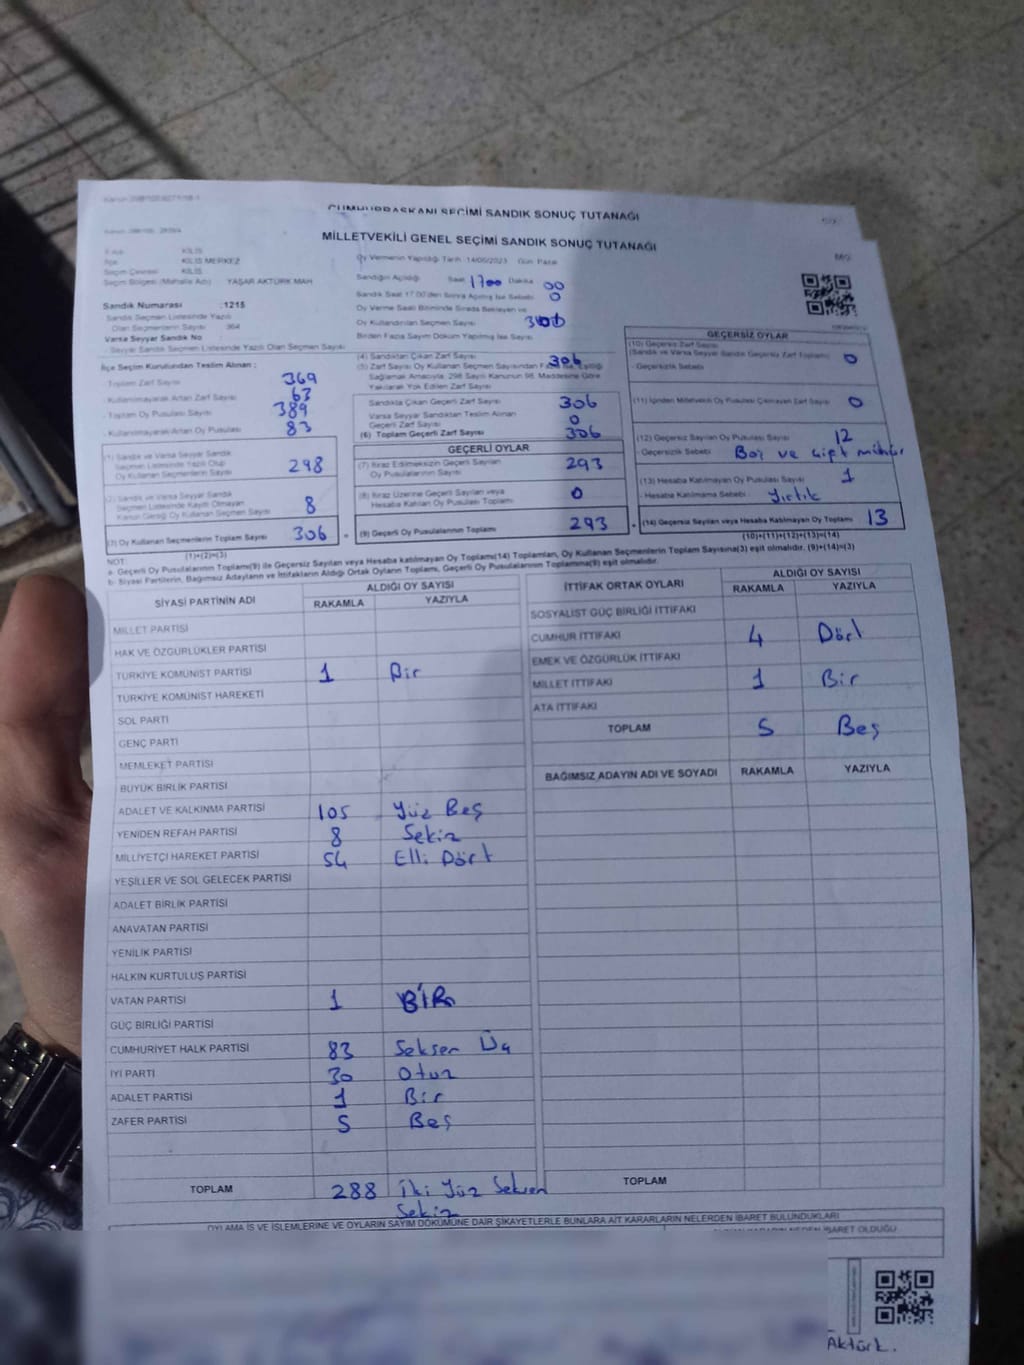 CUMHURBAŞKANI SEÇİMİ SANDIK SONUÇ TUTANAĞI
MİLLETVEKİLİ GENEL SEÇİMİ SANDIK SONUÇ TUTANAĞI
KİLİS
KİLİS MERKEZ
Seçim Çevresi KİLİS
Seçim Bölgesi (Mahalle Adı) YAŞAR AKTÜRK MAH
Sandık Numarası :1215
Sandık Seçmen Listesinde Yazılı
Olan Seçmenlerin Sayısı 364
Varsa Seyyar Sandık No
Seyyar Sandık Seçmen Listesinde Yazılı Olan Seçmen Sayısı
Oy Vermenin Yapıldığı Tarih :14/05/2023 Gün Pazar
Sandığın Açıldığı Saat 1700 Dakika 00
Sandık Saat 17.00'den Sonra Açılmış İse Sebebi 0
Oy Verme Saati Bitiminde Sırada Bekleyen ve
Oy Kullandırılan Seçmen Sayısı
Birden Fazla Sayım Döküm Yapılmış İse Sayısı
İlçe Seçim Kurulundan Teslim Alınan ;
- Toplam Zarf Sayısı 369
- Kullanılmayarak Artan Zarf Sayısı 63
- Toplam Oy Pusulası Sayısı 389
- Kullanılmayarak Artan Oy Pusulası 83
(1) Sandık ve Varsa Seyyar Sandık
Seçmen Listesinde Yazılı Olup
Oy Kullanan Seçmenlerin Sayısı 298
(2) Sandık ve Varsa Seyyar Sandık
Seçmen Listesinde Kayıtlı Olmayan
Kanun Gereği Oy Kullanan Seçmen Sayısı 8
(3) Oy Kullanan Seçmenlerin Toplam Sayısı 306
(1)+(2)=(3)
(4) Sandıktan Çıkan Zarf Sayısı 306
(5) Zarf Sayısı Oy Kullanan Seçmen Sayısından Fazla İse, Eşitliği
Sağlamak Amacıyla, 298 Sayılı Kanunun 98. Maddesine Göre
Yakılarak Yok Edilen Zarf Sayısı
Sandıkta Çıkan Geçerli Zarf Sayısı 306
Varsa Seyyar Sandıktan Teslim Alınan
Geçerli Zarf Sayısı 0
(6) Toplam Geçerli Zarf Sayısı 306
GEÇERLİ OYLAR
(7) İtiraz Edilmeksizin Geçerli Sayılan
Oy Pusulalarının Sayısı 293
(8) İtiraz Üzerine Geçerli Sayılan veya
Hesaba Katılan Oy Pusulası Toplamı 0
(9) Geçerli Oy Pusulalarının Toplamı 293
GEÇERSİZ OYLAR
(10) Geçersiz Zarf Sayısı
(Sandık ve Varsa Seyyar Sandık Geçersiz Zarf Toplamı) 0
- Geçersizlik Sebebi
(11) İçinden Milletvekili Oy Pusulası Çıkmayan Zarf Sayısı 0
(12) Geçersiz Sayılan Oy Pusulası Sayısı 12
- Geçersizlik Sebebi Boş ve çift mühür
(13) Hesaba Katılmayan Oy Pusulası Sayısı 1
- Hesaba Katılmama Sebebi Yırtık
(14) Geçersiz Sayılan veya Hesaba Katılmayan Oy Toplamı 13
(10)+(11)+(12)+(13)=(14)
NOT:
a- Geçerli Oy Pusulalarının Toplamı(9) ile Geçersiz Sayılan veya Hesaba Katılmayan Oy Toplamı(14) Toplamları, Oy Kullanan Seçmenlerin Toplam Sayısına(3) eşit olmalıdır. (9)+(14)=(3)
b- Siyasi Partilerin, Bağımsız Adayların ve İttifakların Aldığı Ortak Oyların Toplamı, Geçerli Oy Pusulalarının Toplamına(9) eşit olmalıdır.
SİYASİ PARTİNİN ADI ALDIĞI OY SAYISI
RAKAMLA YAZIYLA
MİLLET PARTİSİ
HAK VE ÖZGÜRLÜKLER PARTİSİ
TÜRKİYE KOMÜNİST PARTİSİ 1 Bir
TÜRKİYE KOMÜNİST HAREKETİ
SOL PARTİ
GENÇ PARTİ
MEMLEKET PARTİSİ
BÜYÜK BİRLİK PARTİSİ
ADALET VE KALKINMA PARTİSİ 105 Yüz Beş
YENİDEN REFAH PARTİSİ 8 Sekiz
MİLLİYETÇİ HAREKET PARTİSİ 54 Elli Dört
YEŞİLLER VE SOL GELECEK PARTİSİ
ADALET BİRLİK PARTİSİ
ANAVATAN PARTİSİ
YENİLİK PARTİSİ
HALKIN KURTULUŞ PARTİSİ
VATAN PARTİSİ 1 BİR
GÜÇ BİRLİĞİ PARTİSİ
CUMHURİYET HALK PARTİSİ 83 Seksen Üç
İYİ PARTİ 30 Otuz
ADALET PARTİSİ 1 Bir
ZAFER PARTİSİ 5 Beş
TOPLAM 288 İki Yüz Seksen
Sekiz
İTTİFAK ORTAK OYLARI ALDIĞI OY SAYISI
RAKAMLA YAZIYLA
SOSYALİST GÜÇ BİRLİĞİ İTTİFAKI
CUMHUR İTTİFAKI 4 Dört
EMEK VE ÖZGÜRLÜK İTTİFAKI
MİLLET İTTİFAKI 1 Bir
ATA İTTİFAKI
TOPLAM 5 Beş
BAĞIMSIZ ADAYIN ADI VE SOYADI RAKAMLA YAZIYLA
TOPLAM
OYLAMA İŞ VE İŞLEMLERİNE VE OYLARIN SAYIM DÖKÜMÜNE DAİR ŞİKAYETLERLE BUNLARA AİT KARARLARIN NELERDEN İBARET BULUNDUKLARI
NEDEN İBARET OLDUĞU
Aktürk.